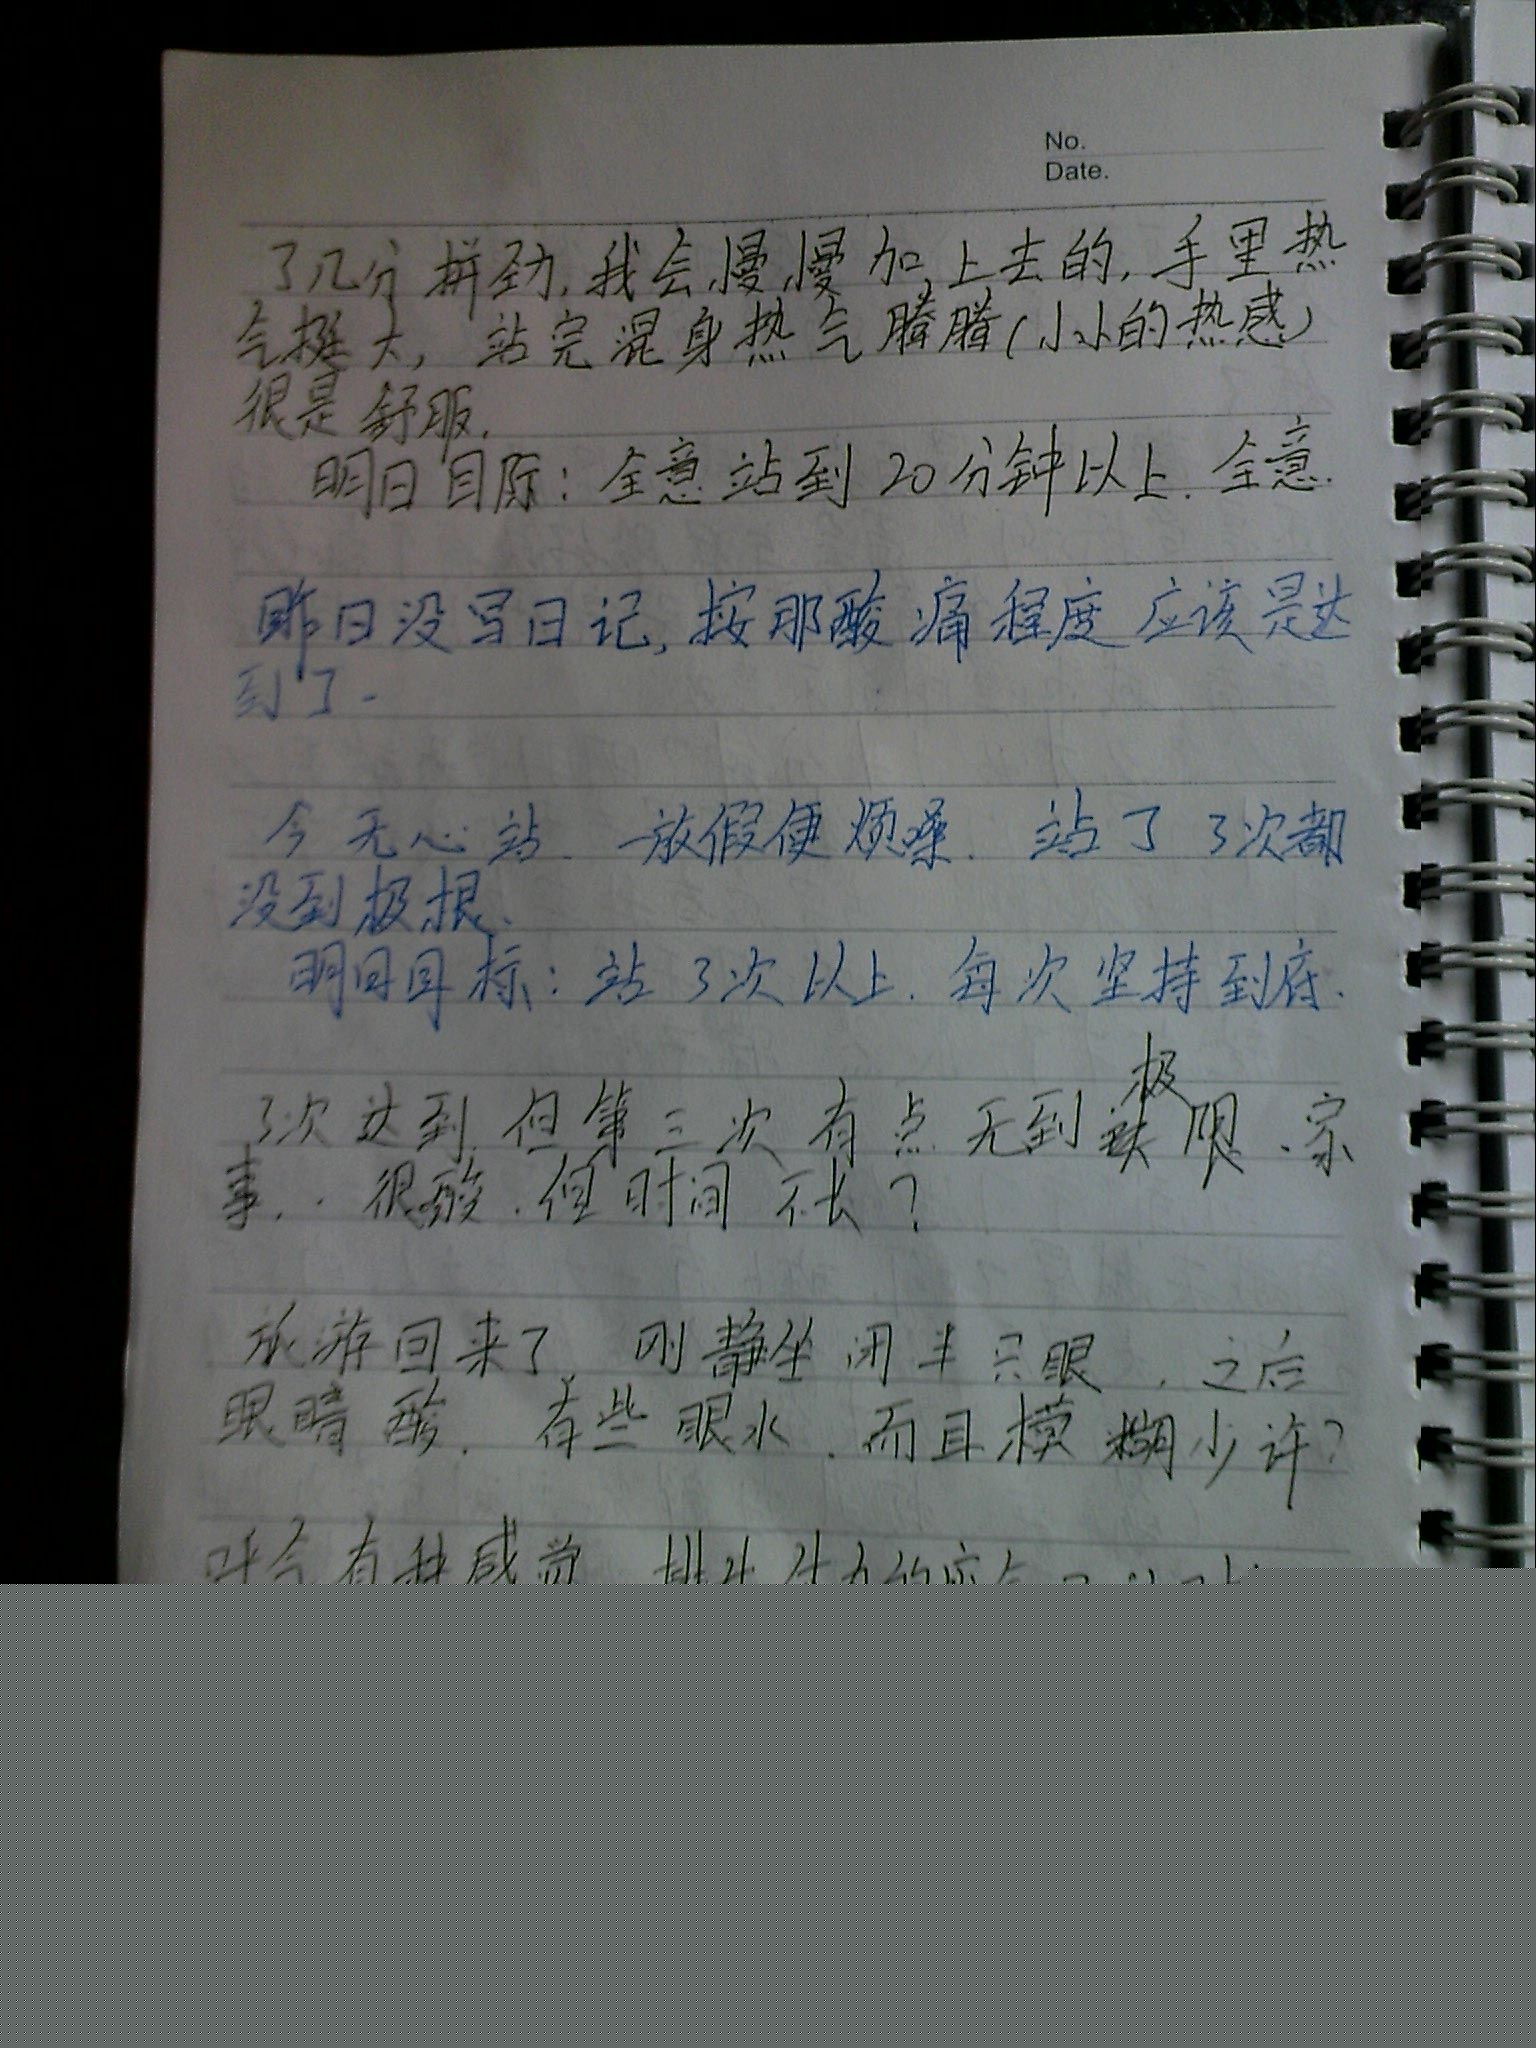 No.
Date.
了几分拼劲,我会慢慢加上去的,手里热
气挺大,站完混身热气腾腾(小小的热感)
很是舒服.
明日目标:全意站到20分钟以上.全意.
昨日没写日记,按那酸痛程度应该是达
到了.
今无心站.一放假便烦嗓.站了3次都
没到极根.
明日目标:站3次以上.每次坚持到底.
3次达到,但第三次有点无到极限.家
事..很酸.但时间不长?
旅游回来了.刚静坐闭半只眼,之后
眼睛酸.有些眼水.而且模糊少许?
呼气有种感觉